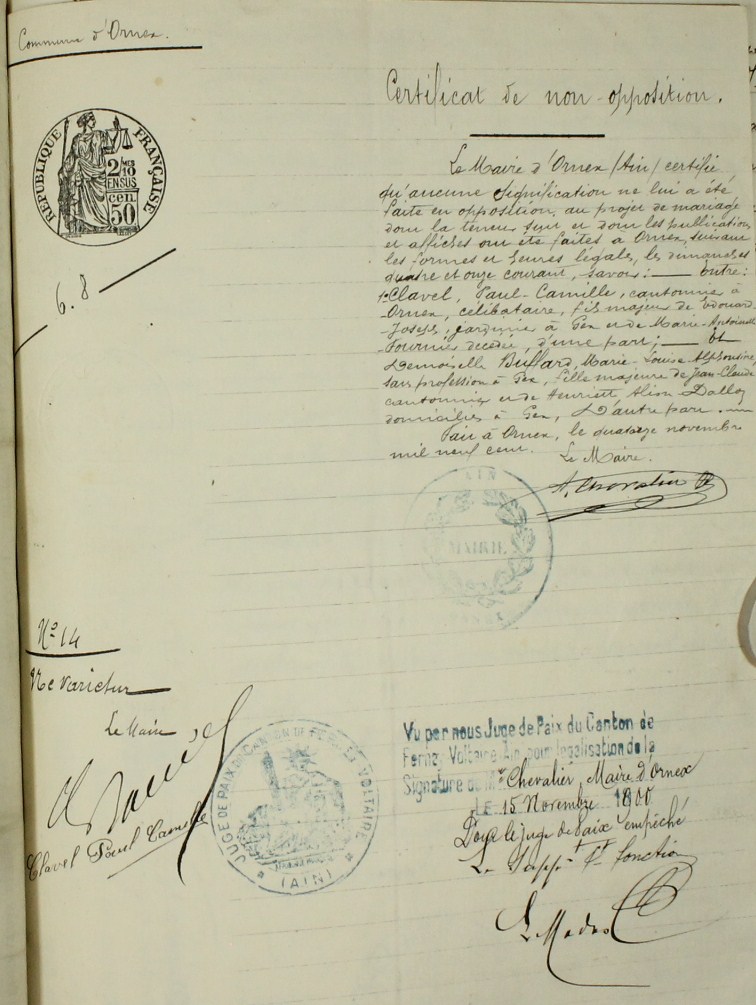 Commune d'Ornex.
RÉPUBLIQUE FRANÇAISE
2/10 MES
EN SUS
50 cen
6.8
Certificat de non-opposition.
Le Maire d'Ornex (Ain) certifie
qu'aucune signification ne lui a été
faite en opposition au projet de mariage
dont la teneur suit et dont les publications
et affiches ont été faites à Ornex, suivant
les formes et heures légales, les dimanches
quatre et onze courant, savoir: — Entre:
1° Clavel, Paul-Camille, cantonnier à
Ornex, célibataire, fils majeur de Edouard-
Joseph, jardinier à Gex et de Marie-Antoinette
Fournier décédée, d'une part; — Et
Demoiselle Buffard, Marie-Louise Alphonsine,
sans profession à Gex, fille majeure de Jean-Claude
cantonnier et de Henriette Dalloz
domiciliés à Gex, D'autre part. —
Fait à Ornex, le quatorze novembre
mil neuf cent. Le Maire.
A. Chevalier
AIN
MAIRIE
ORNEX
N° 14
Ne varietur
Le Maire
Clavel Paul Camille
JUGE DE PAIX DU CANTON DE FERNEY VOLTAIRE
(AIN)
Vu par nous Juge de Paix du Canton de
Ferney Voltaire Ain pour légalisation de la
Signature de Mr Chevalier, Maire d'Ornex
LE 15 Novembre 1900
Pour le juge de Paix empêché
Le Suppt ft fonction